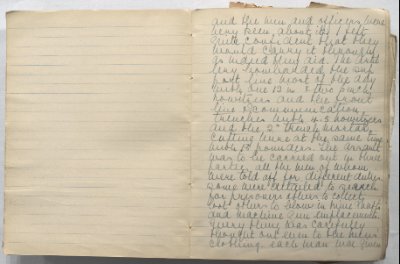 and the men and officers were
very keen about it & I felt
quite confident that they
would carry it through
as indeed they did. The Artil
lery bombarded the sup
port line most of the day
with one 12 in & two inch
howitzers and the front
line & communication
trenches with 4.5 howitzers
and the 2" trench mortars
cutting wire at the same time
with 18 pounders. The assault
was to be carried out in three
parties, all the men of whom
were told off for different duties
some were detailed to search
for prisoners others to collect
loot others to throw in
and machine gun emplacements.
Every thing was carefully
thought out even to the mens
clothing. Each man was given